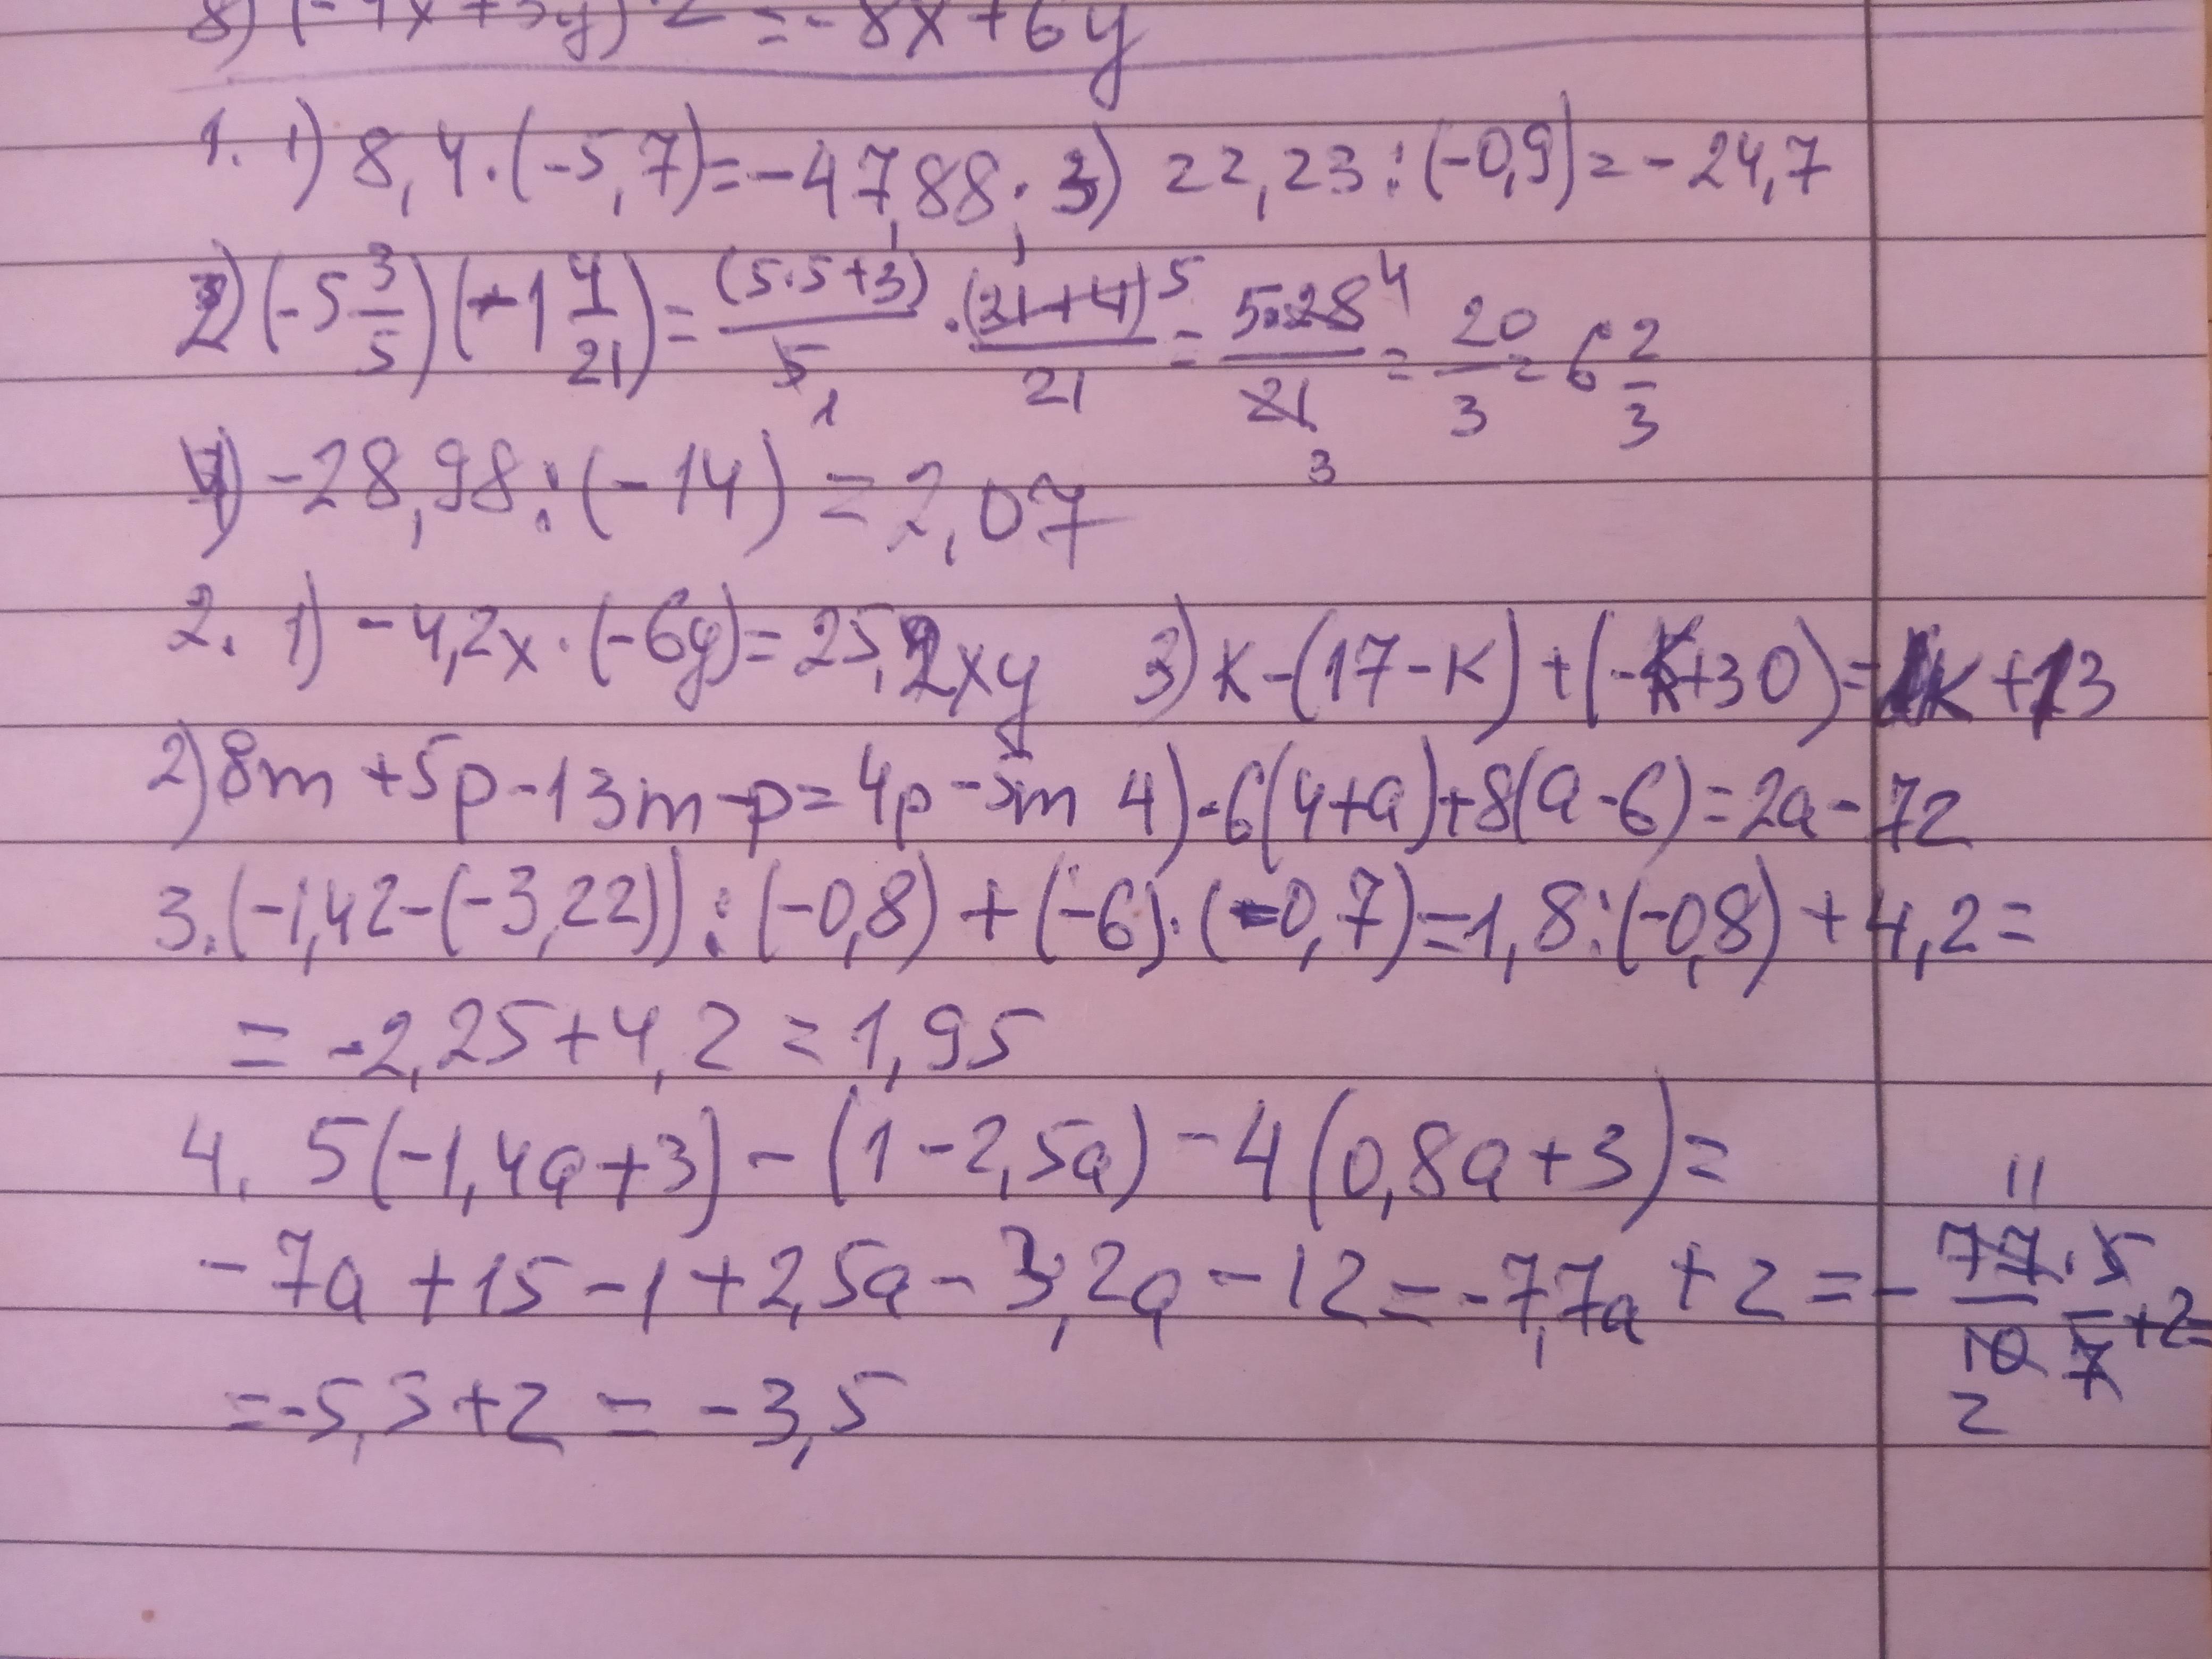 8) (-4x+3y)·2 = -8x+6y
1. 1) 8,4·(-5,7)=-47,88; 3) 22,23:(-0,9)=-24,7
2) (-5 3/5)(-1 4/21)= (5·5+3)/5 1 · (21+4) 5/21 = 5·28 4/21 3 = 20/3 = 6 2/3
4) -28,98:(-14) = 2,07
2. 1) -4,2x·(-6y)=25,2xy 3) k-(17-k)+(-k+30)=k+13
2) 8m+5p-13m-p=4p-5m 4) -6(4+a)+8(a-6)=2a-72
3. (-1,42-(-3,22)):(-0,8)+(-6)·(-0,7)=1,8:(-0,8)+4,2=
= -2,25+4,2=1,95
4. 5(-1,4a+3)-(1-2,5a)-4(0,8a+3)=
-7a+15-1+2,5a-3,2a-12=-7,7a+2=- 77 11/10 2 · 5/7 +2=
=-5,5+2=-3,5